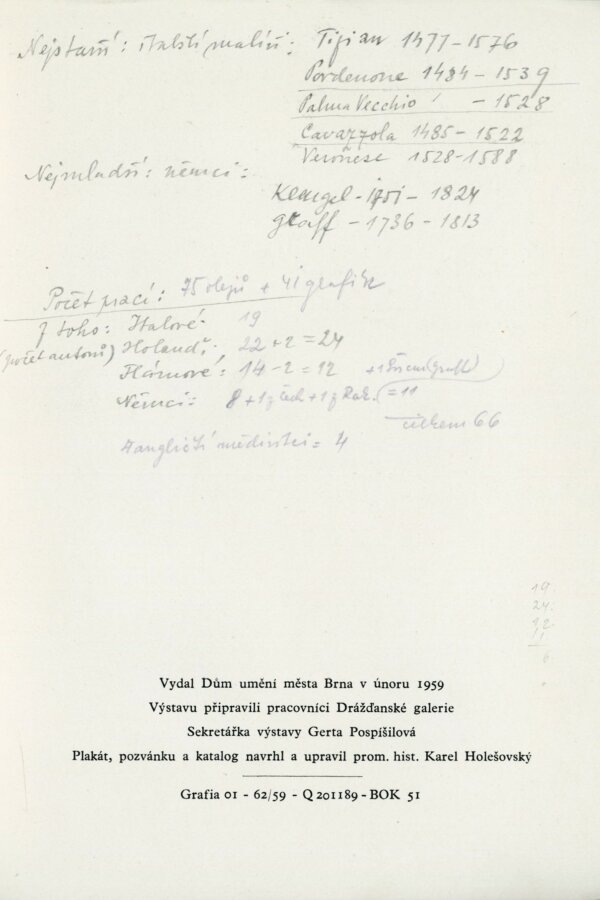 Nejstarší: italští malíři: Tizian 1477-1576
Pordenone 1484-1539
Palma Vecchio - 1528
Cavazzola 1485-1522
Veronese 1528-1588
Nejmladší: němci:
Klengel - 1751 - 1824
Graff - 1736 - 1813
Počet prací: 75 olejů + 41 grafik
Z toho: Italové 19
(počet autorů) Holanď.: 22+2=24
Flámové: 14-2=12
Němci: 8+1 z Čech+1 z Rak. =11
celkem 66
4 angličtí mědirytci = 4
19
24
12
11
6
Vydal Dům umění města Brna v únoru 1959
Výstavu připravili pracovníci Drážďanské galerie
Sekretářka výstavy Gerta Pospíšilová
Plakát, pozvánku a katalog navrhl a upravil prom. hist. Karel Holešovský
Grafia 01 - 62/59 - Q 201189 - BOK 51